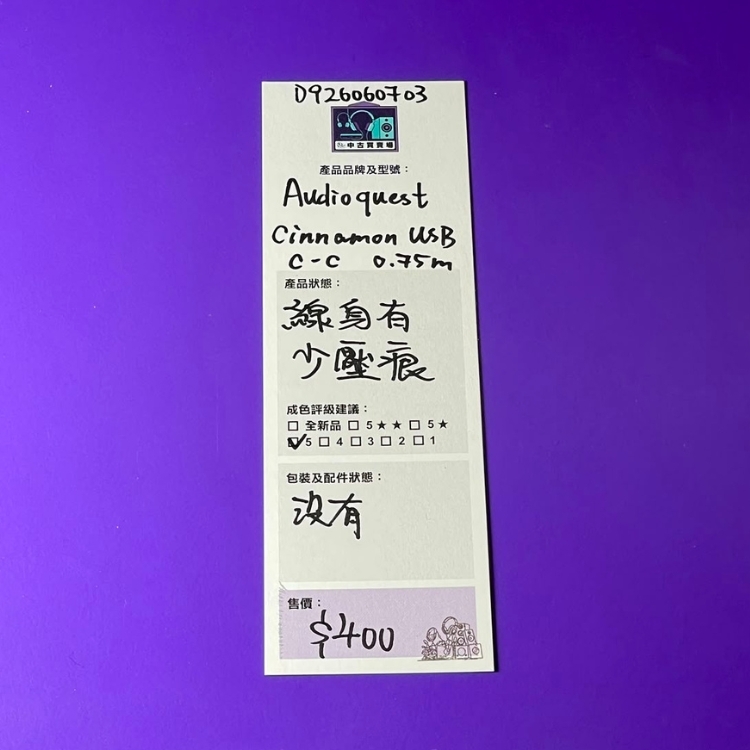 D926060703
中古買賣場
產品品牌及型號：
Audioquest
Cinnamon USB
C-C 0.75m
產品狀態：
線身有
少壓痕
成色評級建議：
☐ 全新品 ☐ 5★★ ☐ 5★
☑ 5 ☐ 4 ☐ 3 ☐ 2 ☐ 1
包裝及配件狀態：
沒有
售價：
$400